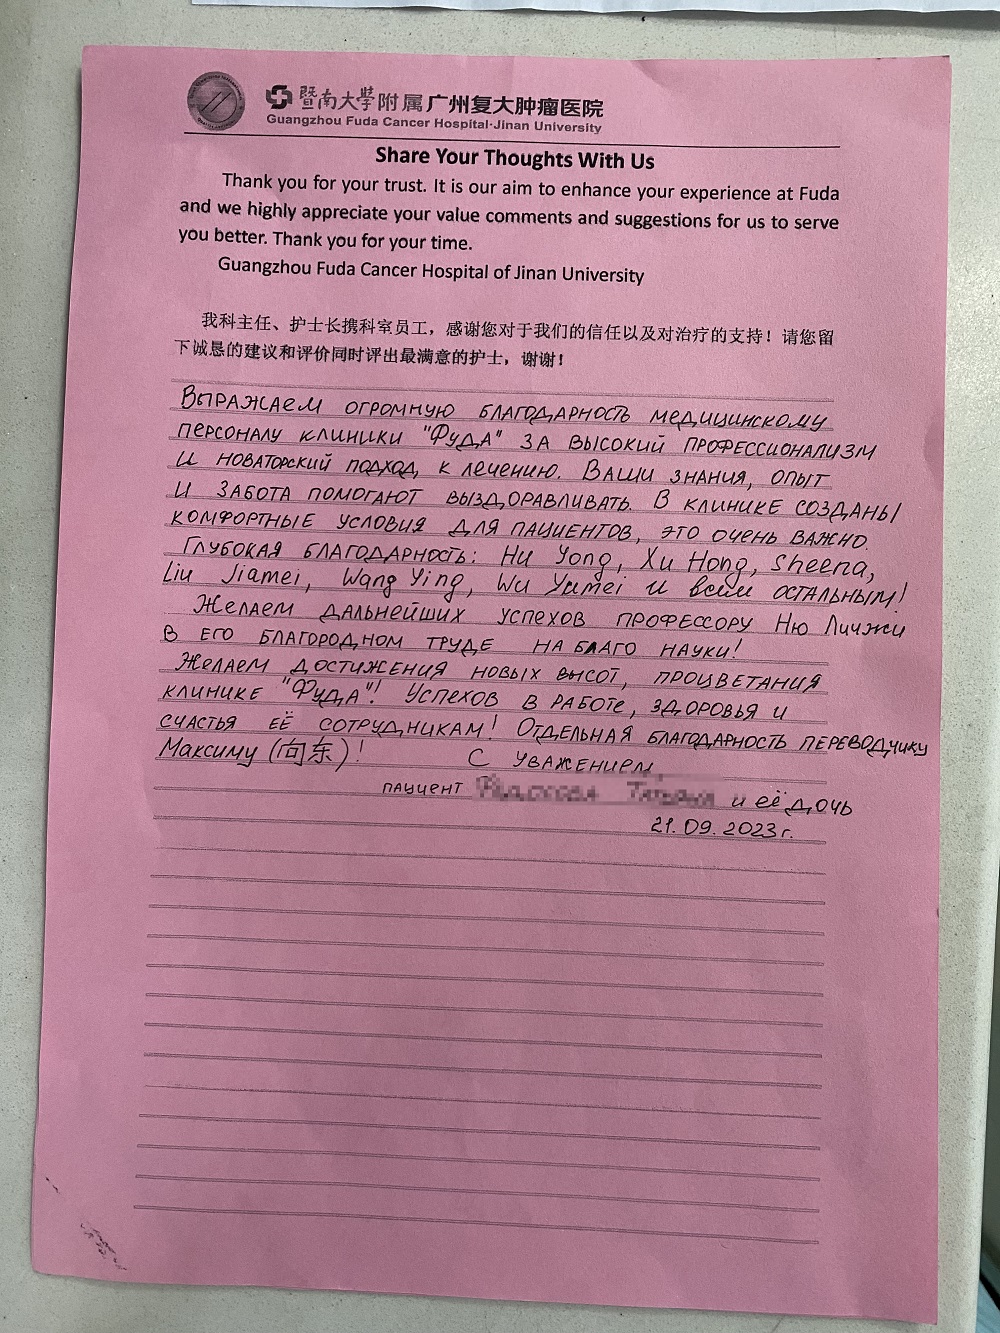 暨南大學附属广州复大肿瘤医院
Guangzhou Fuda Cancer Hospital·Jinan University
Share Your Thoughts With Us
Thank you for your trust. It is our aim to enhance your experience at Fuda
and we highly appreciate your value comments and suggestions for us to serve
you better. Thank you for your time.
Guangzhou Fuda Cancer Hospital of Jinan University
我科主任、护士长携科室员工，感谢您对于我们的信任以及对治疗的支持！请您留
下诚恳的建议和评价同时评出最满意的护士，谢谢！
Выражаем огромную благодарность медицинскому
персоналу клиники "Фуда" за высокий профессионализм
и новаторский подход к лечению. Ваши знания, опыт
и забота помогают выздоравливать. В клинике созданы
комфортные условия для пациентов, это очень важно.
Глубокая благодарность: Hu Yong, Xu Hong, Sheena,
Liu Jiamei, Wang Ying, Wu Yumei и всем остальным!
Желаем дальнейших успехов профессору Ню Личжи
в его благородном труде на благо науки!
Желаем достижения новых высот, процветания
клинике "Фуда"! Успехов в работе, здоровья и
счастья её сотрудникам! Отдельная благодарность переводчику
Максиму (向东)!
С уважением,
пациент и её дочь
21.09.2023г.